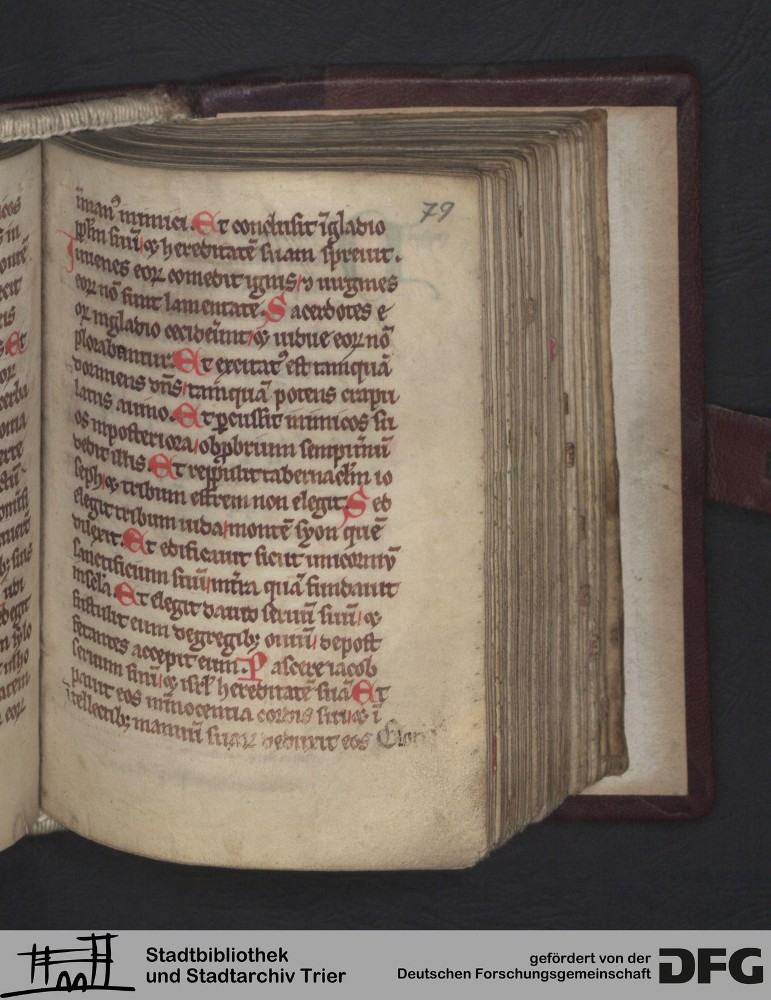 79
iman⁹ inimici. Et conclusit i gladio
pplm suu / ⁊ hereditatē suam spreuit.
Iuuenes eoꝝ comedit ignis / ⁊ uirgines
eoꝝ nō sunt lamentate. Sacerdotes e
oꝝ ingladio ceciderunt / ⁊ uidue eoꝝ nō
plorabantur. Et excitat⁹ est tamquā
dormiens dn̄s / tamquā potens crapu
latus a uino. Et ꝑcussit inimicos su
os inposteriora / obprbrium sempiternū
dedit illis. Et reppulit tabernaclm io
seph / ⁊ tribum effrem non elegit. Sed
elegit tribum iuda / montē syon quē
dilexit. Et edificauit sicut unicorniū
sanctificium suū / in tr̄a quā fundauit
in scla. Et elegit dauid seruū suū / ⁊
sustulit eum de gregibꝫ ouiū / depost
fetantes accepit eum. Pascere iacob
seruum suū / ⁊ isrl hereditatē suā. Et
pauit eos in innocentia cordis sui / ⁊ i
tellectibꝫ manuū suaꝝ deduxit eos Glori
Stadtbibliothek
und Stadtarchiv Trier
gefördert von der
Deutschen Forschungsgemeinschaft
DFG